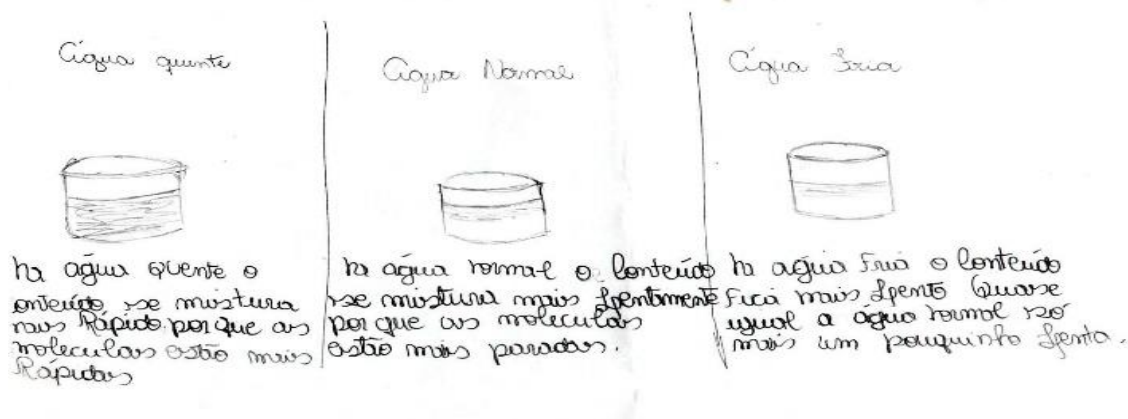 Água quente
na água quente o
onteúdo se mistura
mais Rápido por que as
moleculas estão mais
Rápidas
Água Normal
na água normal o Conteúdo
se mistura mais Lentamente
por que as moleculas
estão mais paradas.
Água Fria
na agua Fria o Conteúdo
Fica mais Lento Quase
igual a água normal só
mais um pouquinho Lenta.